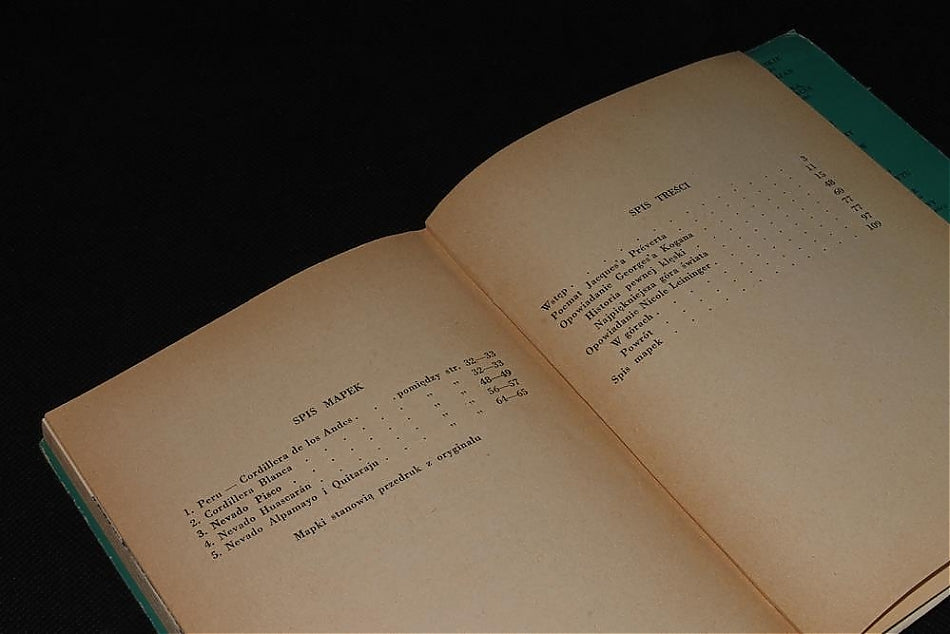 SPIS MAPEK
1. Peru — Cordillera de los Andes . . . pomiędzy str. 32—33
2. Cordillera Blanca . . . . . „ „ 32—33
3. Nevado Pisco . . . . . „ „ 48—49
4. Nevado Huascarán . . . . . „ „ 56—57
5. Nevado Alpamayo i Quitaraju . . . „ „ 64—65
Mapki stanowią przedruk z oryginału
SPIS TREŚCI
Wstęp . . . . . . . . 3
Poemat Jacques'a Préverta . . . . . . 11
Opowiadanie Georges'a Kogana . . . . . . 15
Historia pewnej klęski . . . . . . 48
Najpiękniejsza góra świata . . . . . . 60
Opowiadanie Nicole Leininger . . . . . . 77
W górach . . . . . . . . 77
Powrót . . . . . . . . 97
Spis mapek . . . . . . . . 109